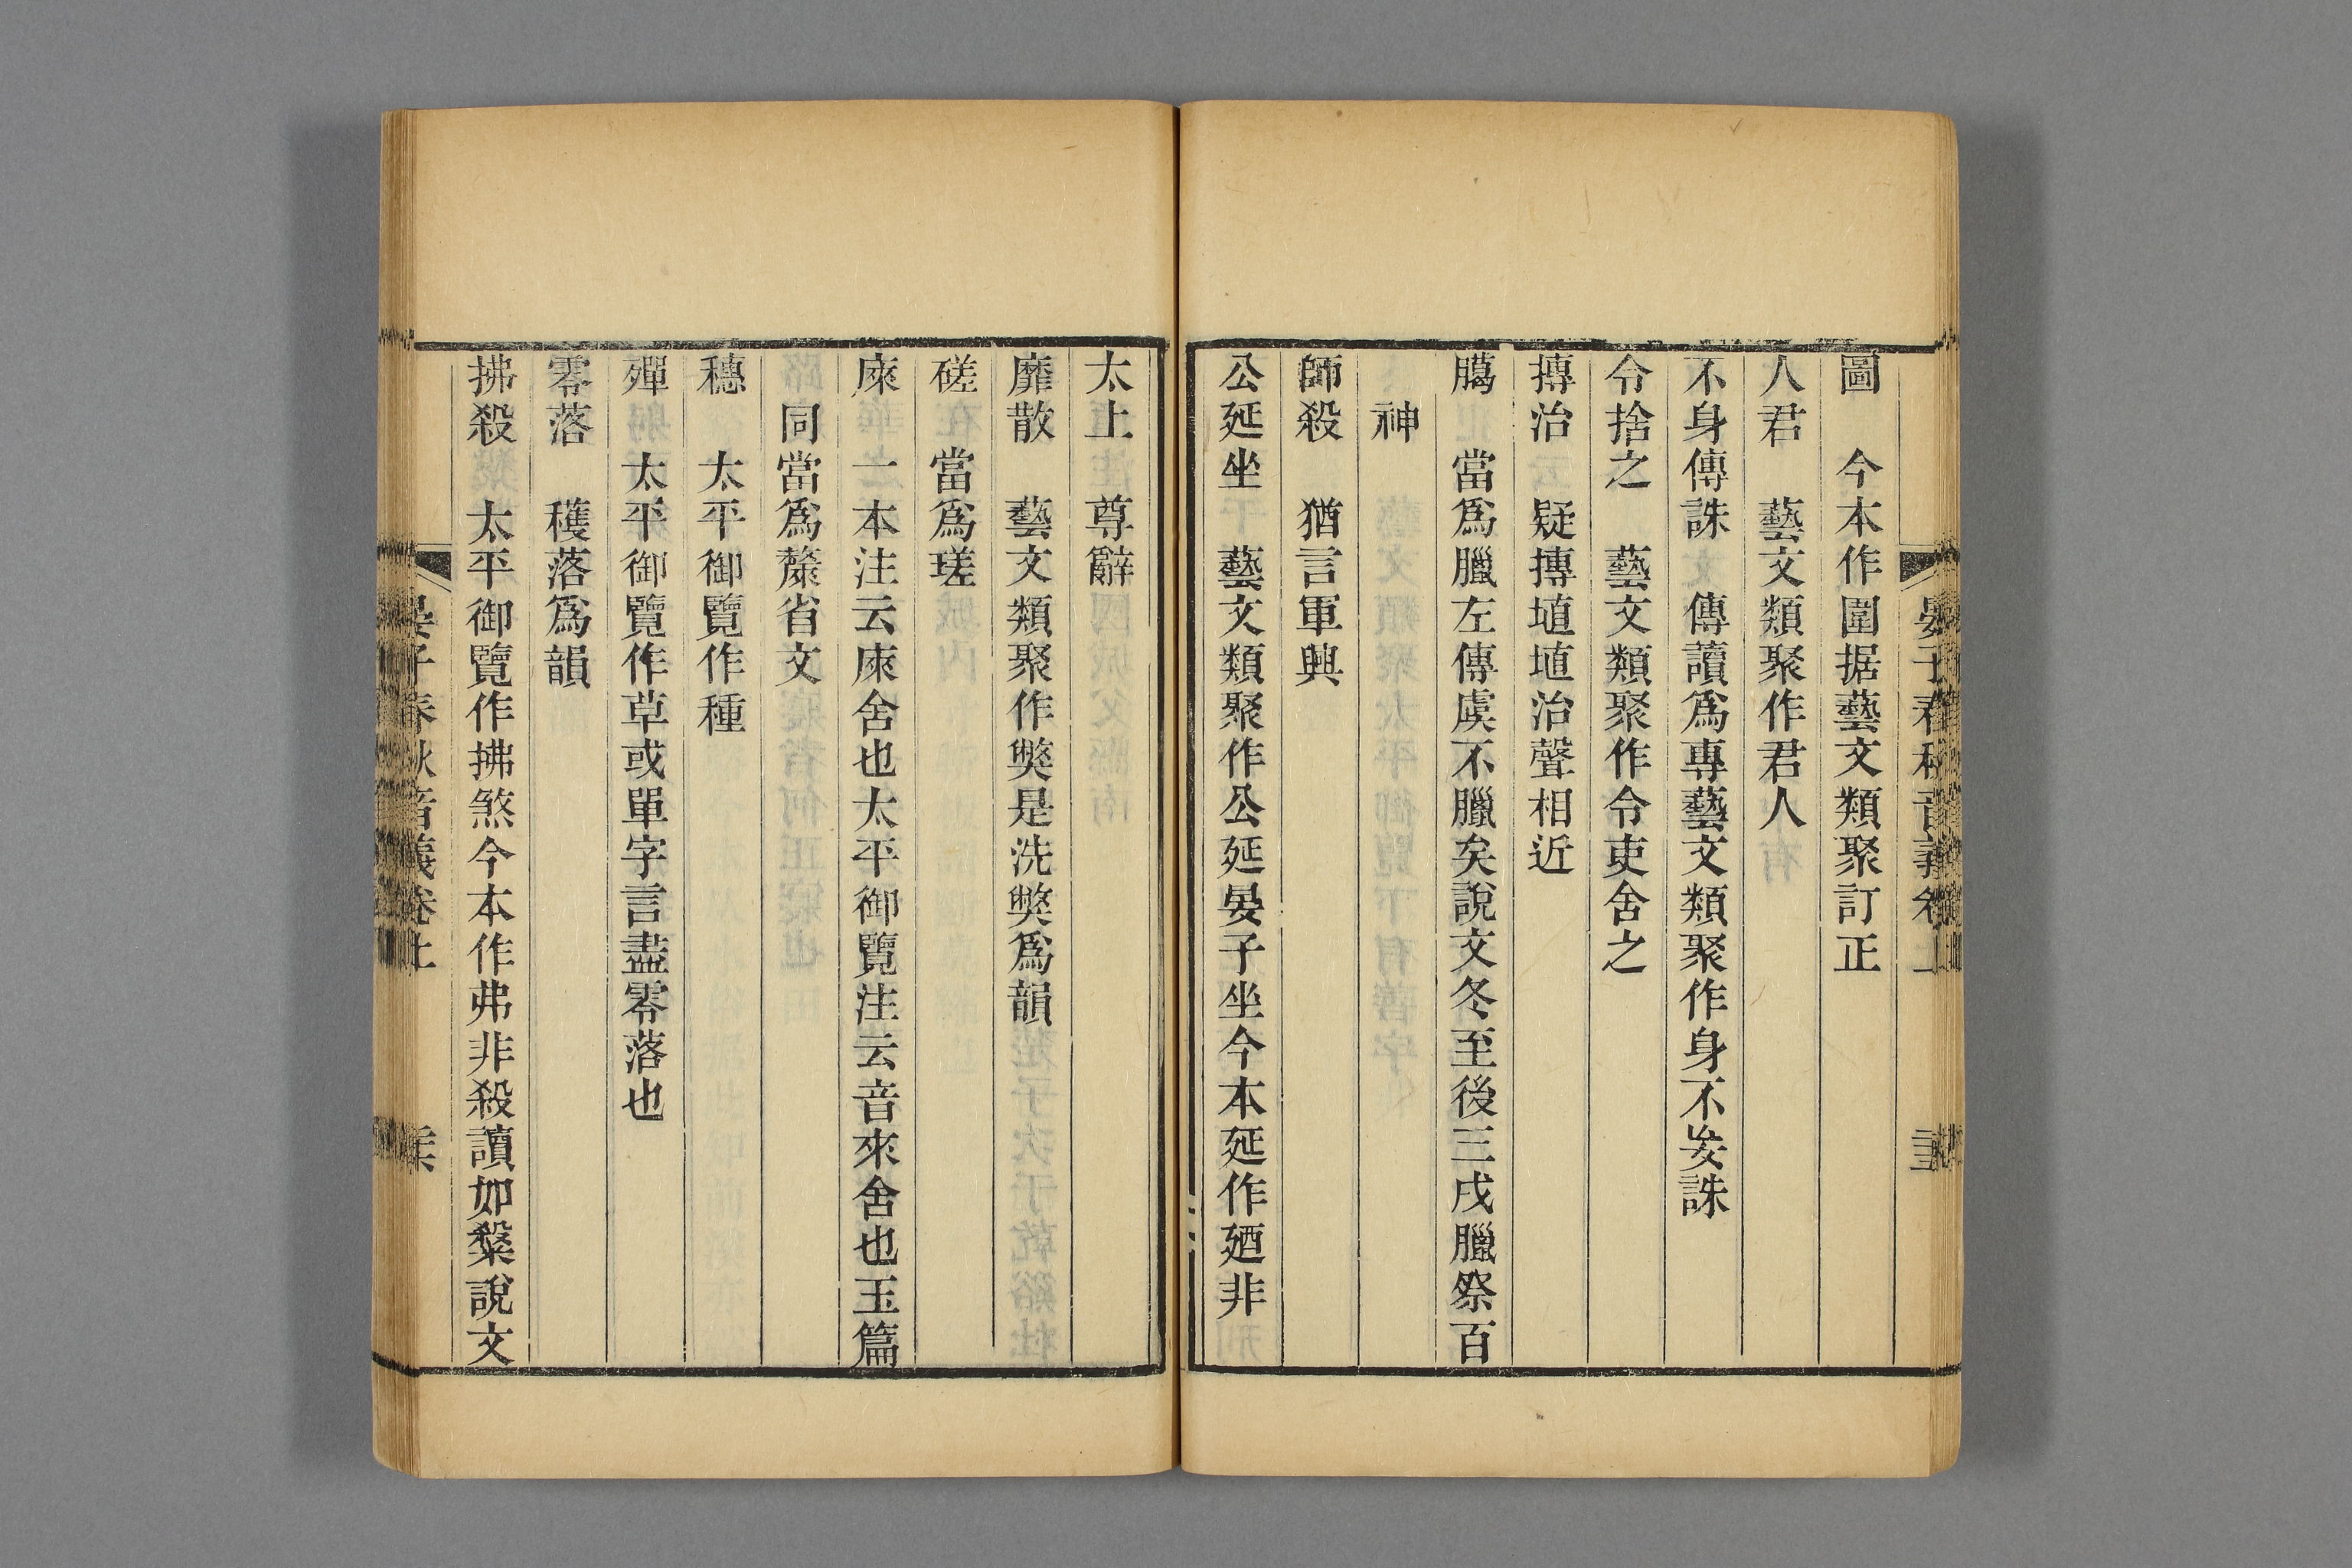 圖　今本作圍据藝文類聚訂正
人君　藝文類聚作君人
不身傳誅　傳讀爲專藝文類聚作身不妄誅
令捨之　藝文類聚作令吏舍之
摶治　疑摶埴埴治聲相近
臈　當爲臘左傳虞不臘矣說文冬至後三戌臘祭百
神
師殺　猶言軍興
公延坐　藝文類聚作公延晏子坐今本延作廼非
太上　尊辭
靡散　藝文類聚作獘是洗獘爲韻
磋　當爲瑳
庲　一本注云庲舍也太平御覽注云音來舍也玉篇
同當爲斄省文
穗　太平御覽作種
殫　太平御覽作草或單字言盡零落也
零落　穫落爲韻
拂殺　太平御覽作拂煞今本作弗非殺讀如檠說文
晏子春秋音義卷上